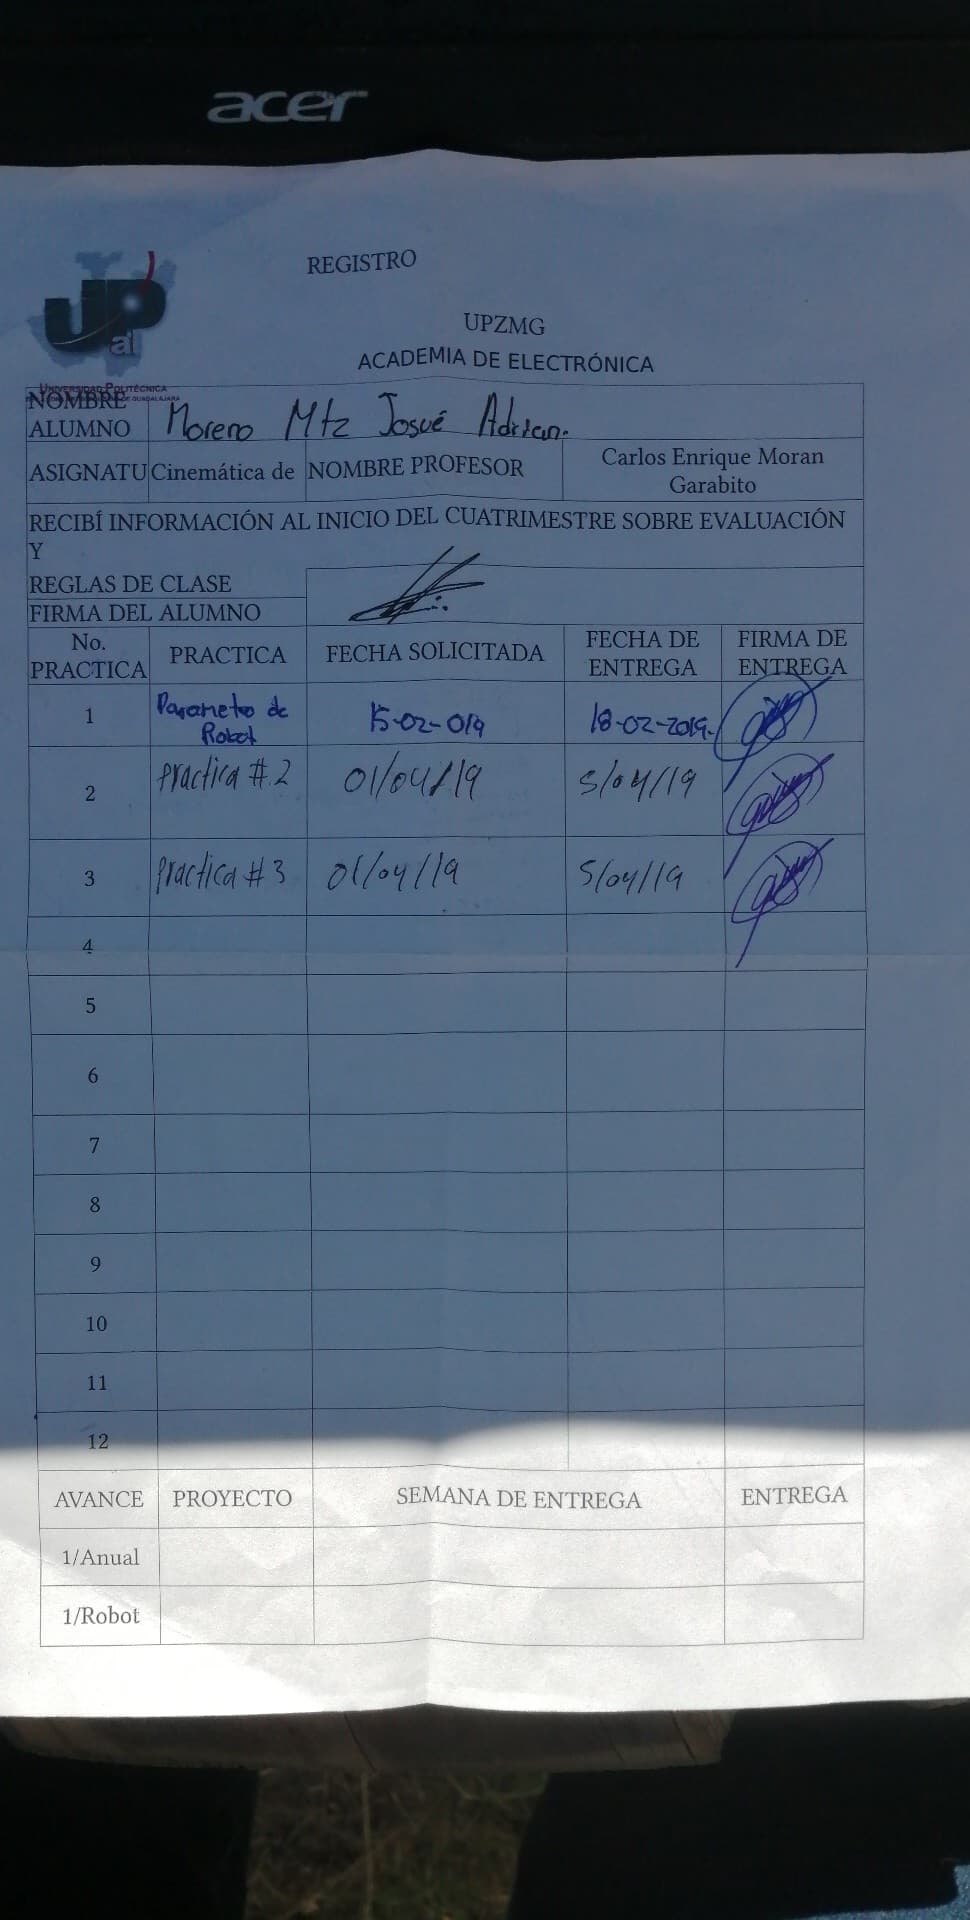 acer
REGISTRO
UPZMG
ACADEMIA DE ELECTRÓNICA
UPai
UNIVERSIDAD POLITÉCNICA
DE GUADALAJARA
NOMBRE
ALUMNO Moreno Mtz Josué Adrian.
ASIGNATU Cinemática de NOMBRE PROFESOR Carlos Enrique Moran
Garabito
RECIBÍ INFORMACIÓN AL INICIO DEL CUATRIMESTRE SOBRE EVALUACIÓN
Y
REGLAS DE CLASE
FIRMA DEL ALUMNO
No.
PRACTICA PRACTICA FECHA SOLICITADA FECHA DE
ENTREGA FIRMA DE
ENTREGA
1 Parametro de
Robot 15-02-019 18-02-2019.
2 Practica #.2 01/04/19 5/04/19
3 Practica #3 01/04/19 5/04/19
4
5
6
7
8
9
10
11
12
AVANCE PROYECTO SEMANA DE ENTREGA ENTREGA
1/Anual
1/Robot